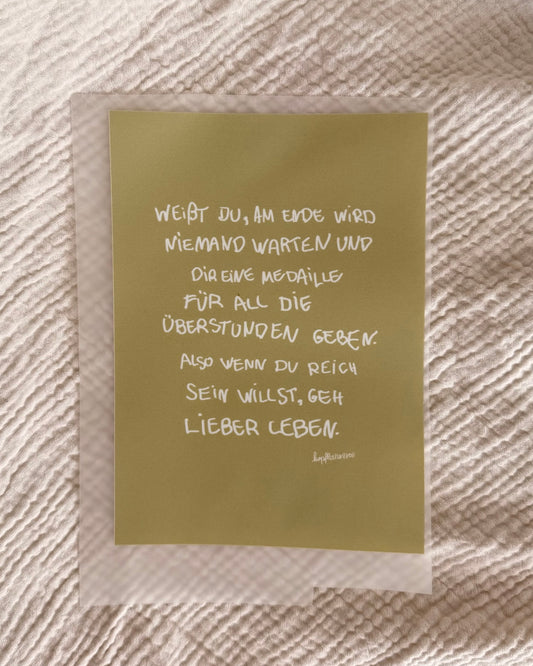 WEIßT DU, AM ENDE WIRD
NIEMAND WARTEN UND
DIR EINE MEDAILLE
FÜR ALL DIE
ÜBERSTUNDEN GEBEN.
ALSO WENN DU REICH
SEIN WILLST, GEH
LIEBER LEBEN.